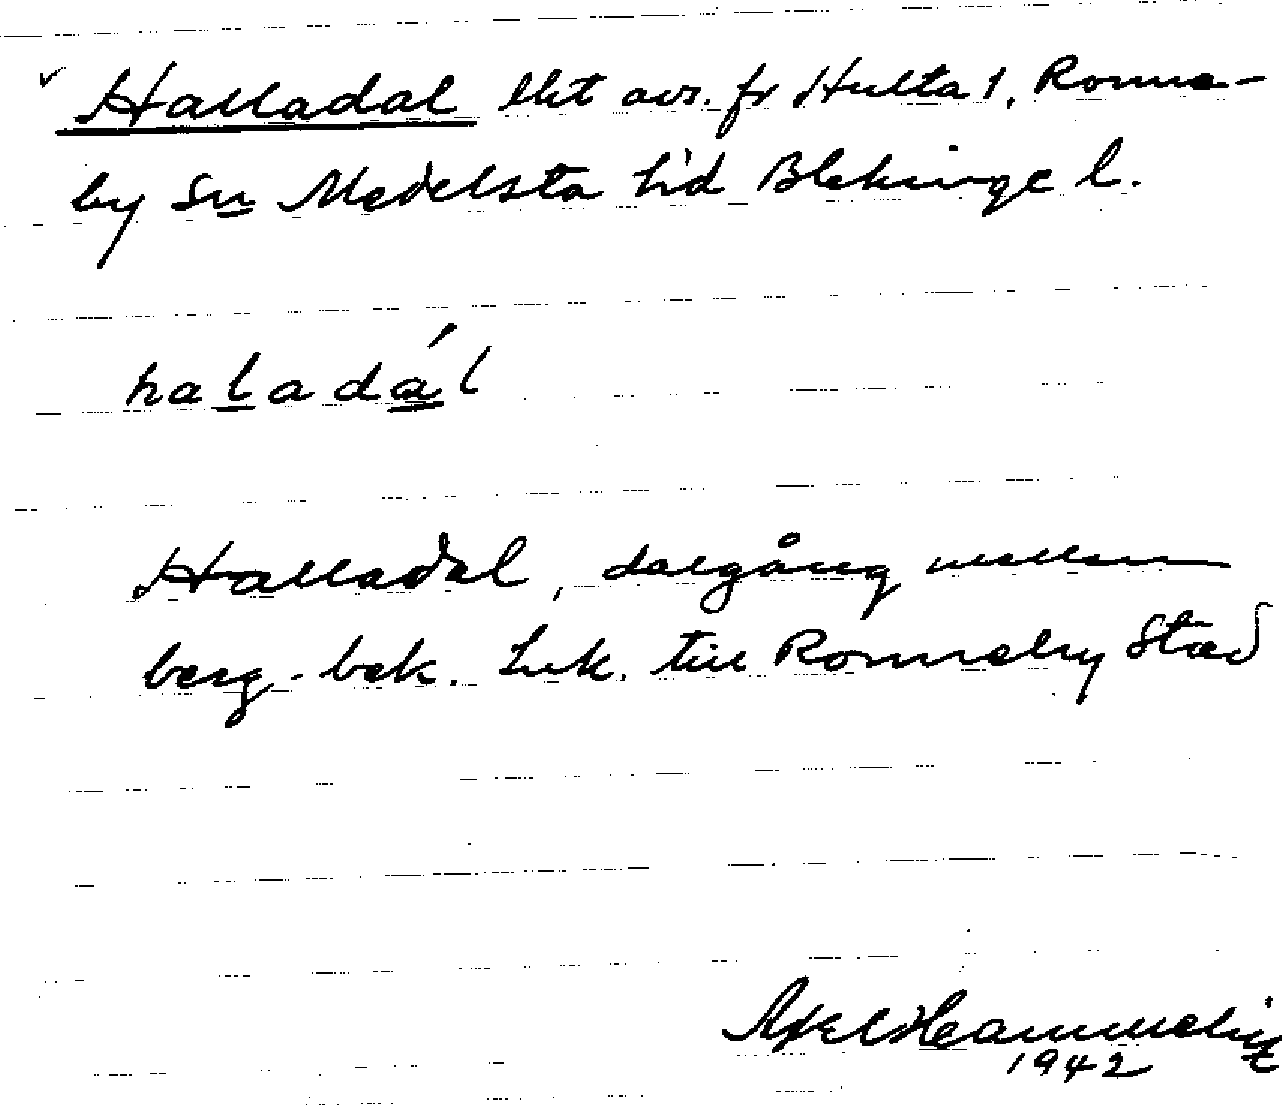 Halladal lht avs. fr Hulta 1, Ronne-
by Sn Medelsta h'd Blekinge l.
haladál
Halladal, dalgång mellan
berg. bek. Ink. till Ronneby Stad
Axel Hammelin
1942